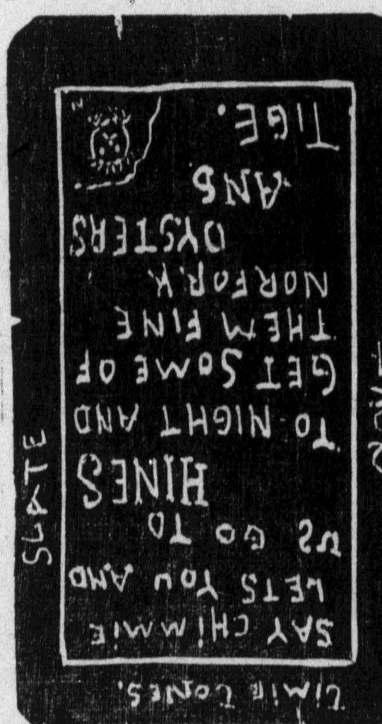 Jimie Jones.
SAY CHIMMIE
LETS YOU AND
US GO TO
HINES
TO-NIGHT AND
GET SOME OF
THEM FINE
NORFORK
OYSTERS
ANS
TIGE.
SLATE